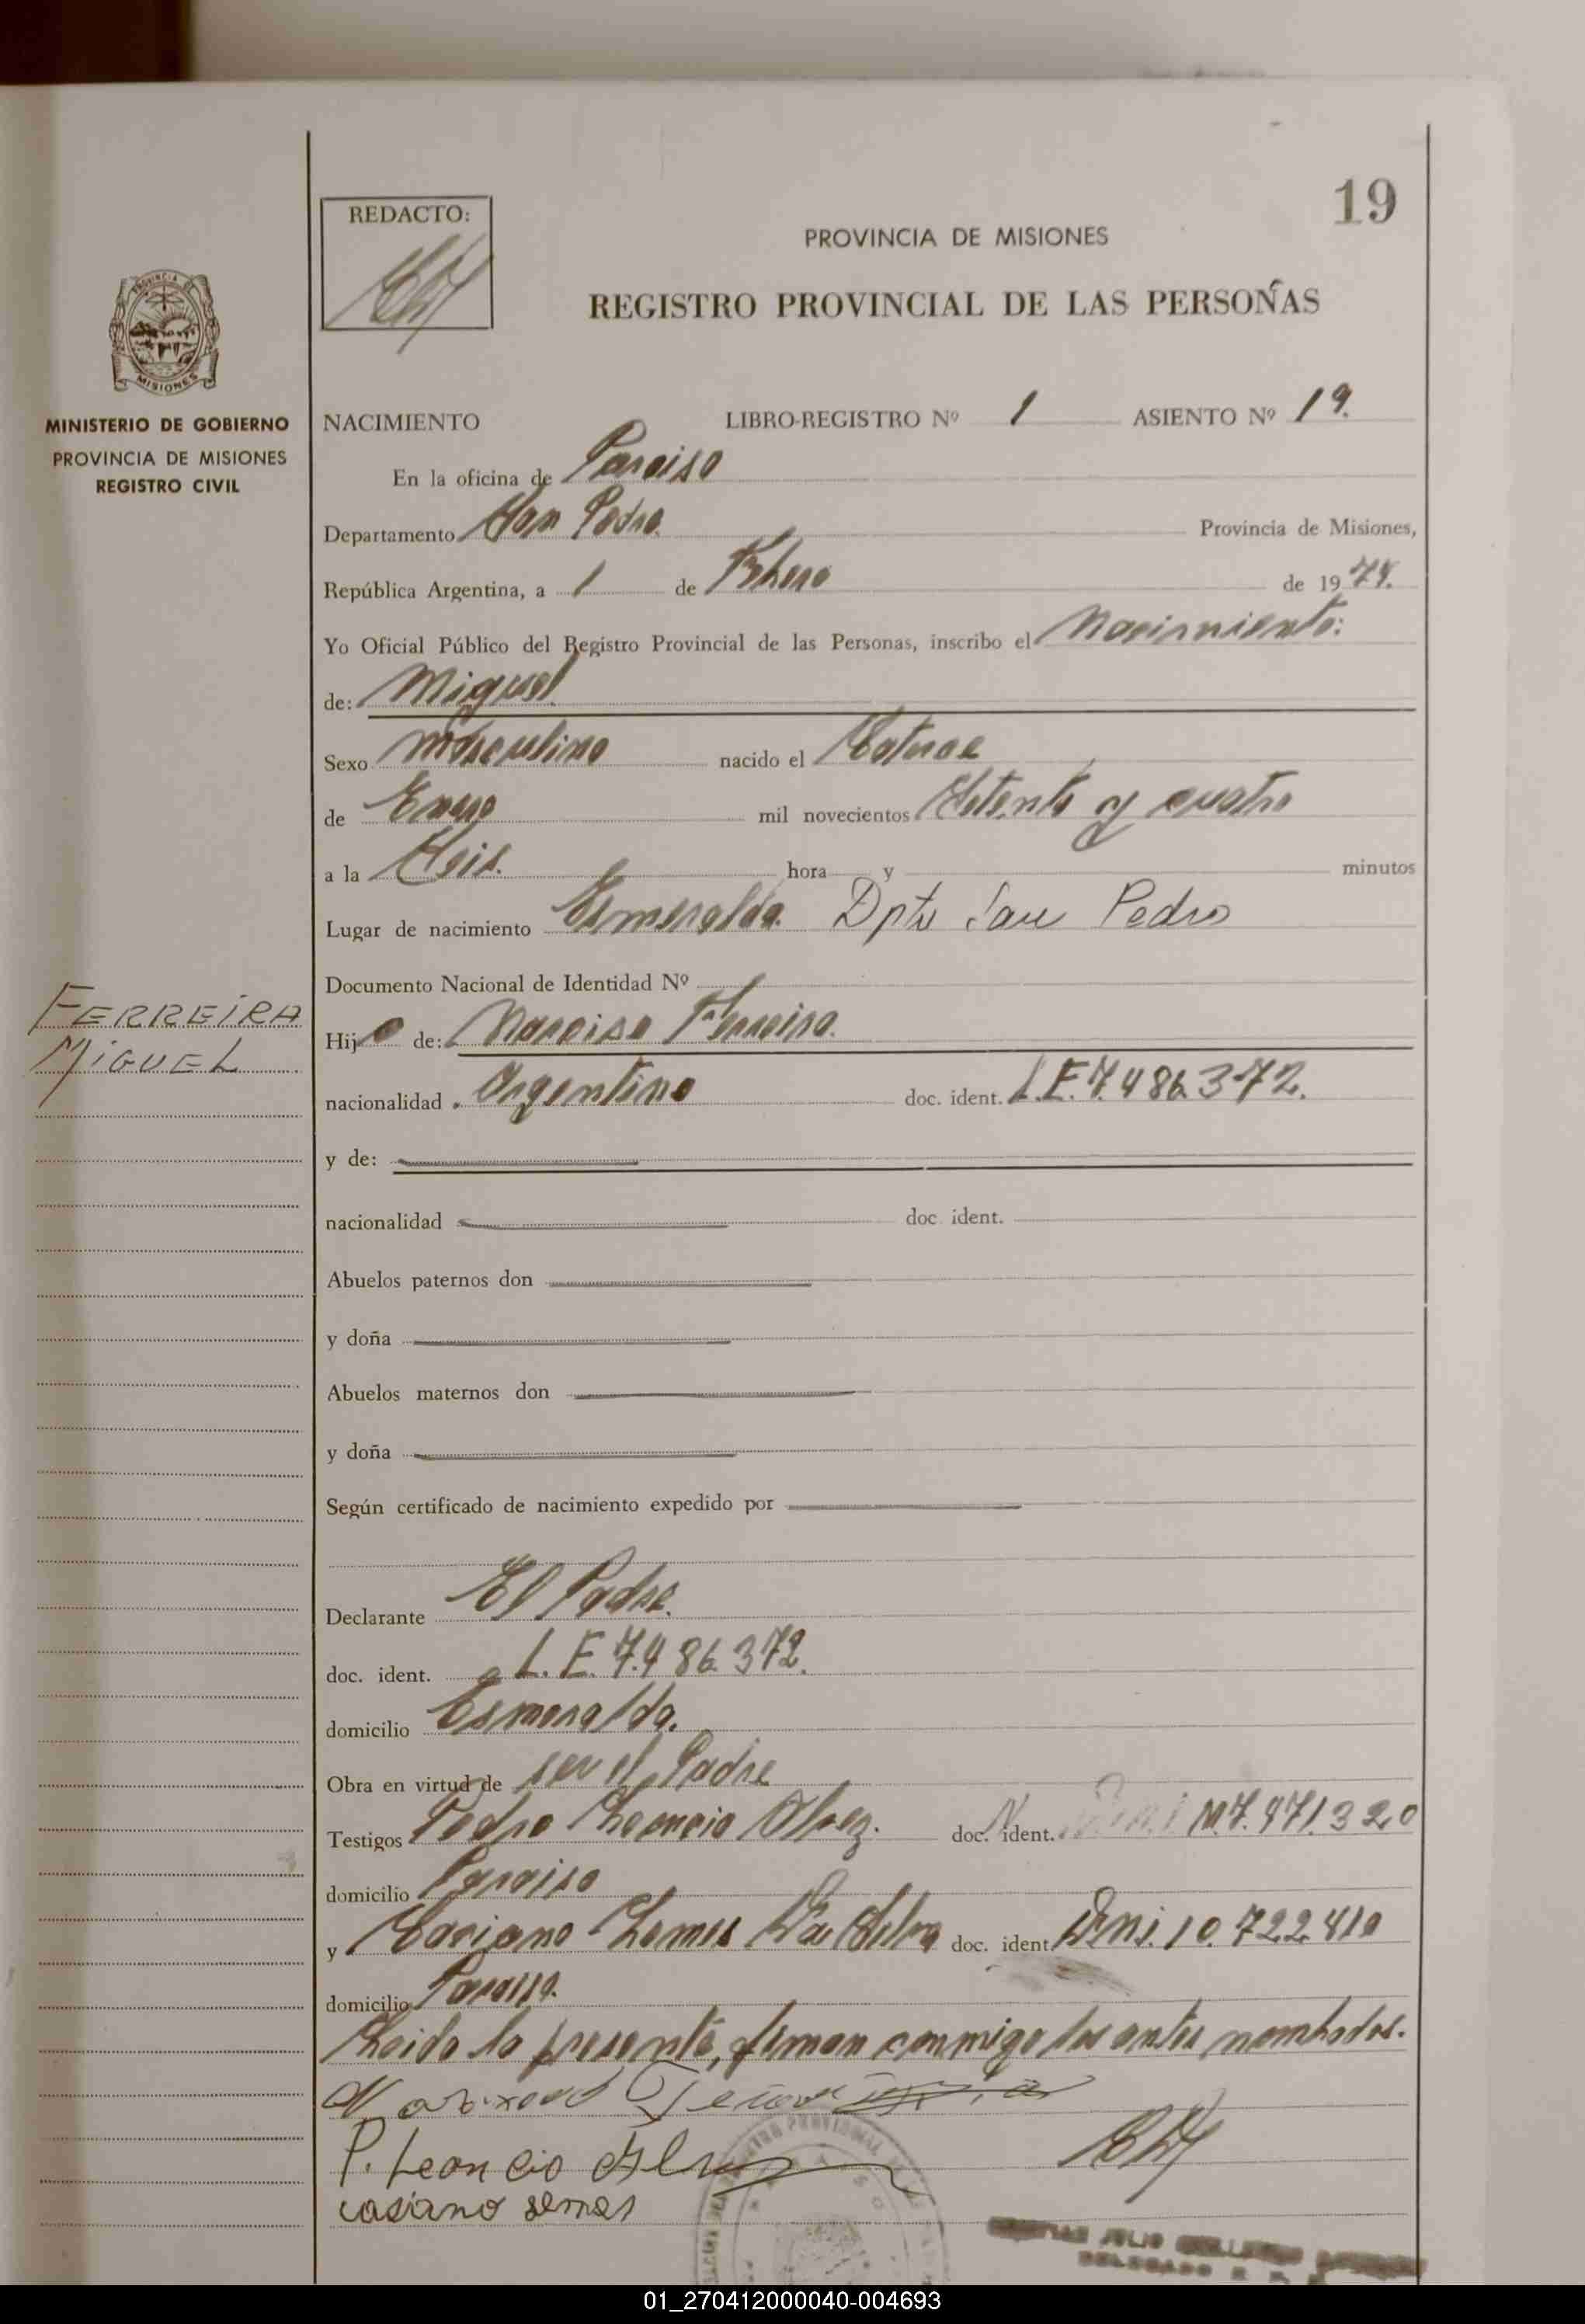 19
REDACTO:
PROVINCIA DE MISIONES
REGISTRO PROVINCIAL DE LAS PERSONAS
MISIONES
MINISTERIO DE GOBIERNO
PROVINCIA DE MISIONES
REGISTRO CIVIL
NACIMIENTO LIBRO-REGISTRO Nº 1 ASIENTO Nº 19.
En la oficina de Paraiso
Departamento San Pedro. Provincia de Misiones,
República Argentina, a 1 de Febrero de 1974.
Yo Oficial Público del Registro Provincial de las Personas, inscribo el Nacimiento:
de: Miguel
Sexo masculino nacido el Catorce
de Enero mil novecientos Setenta y cuatro
a la Seis. hora y minutos
Lugar de nacimiento Esmeralda. Dpto San Pedro
Documento Nacional de Identidad Nº
FERREiRA
MiGUEL
Hijo de: Narciso Ferreira.
nacionalidad Argentino doc. ident. L.E. 7.486.372.
y de:
nacionalidad doc. ident.
Abuelos paternos don
y doña
Abuelos maternos don
y doña
Según certificado de nacimiento expedido por
Declarante El Padre.
doc. ident. L.E. 7.486.372.
domicilio Esmeralda.
Obra en virtud de ser el Padre
Testigos Pedro Leoncio Alvez. doc. ident. M.7.471.320
domicilio Paraiso
y Casiano Lemes Da Silva doc. ident. Dni. 10.722.410
domicilio Paraiso.
Leida la presente, firman conmigo los antes nombrados.
P. Leoncio Alvez
casiano lemes
JULIO
DELEGADO
01_270412000040-004693